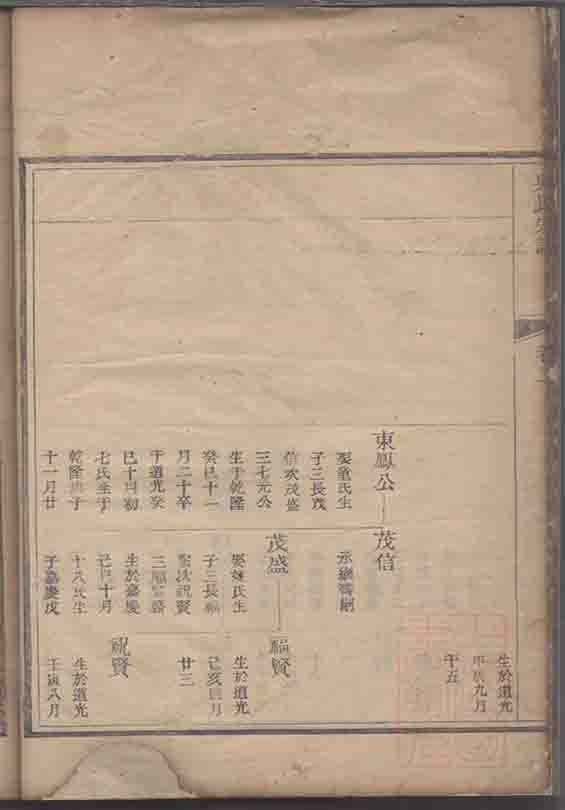 生於道光
甲辰九月
十五
東鳳公
娶童氏生
子三長茂
信次茂盛
三七元公
生于乾隆
癸巳十一
月二十卒
于道光癸
巳十月初
七氏生于
乾隆子
十一月廿
茂信
茂盛
子三長福
次祝賢
三
生於嘉慶
己巳十月
十八氏生
于嘉慶戊
福賢
生於道光
己亥四月
廿三
祝賢
生於道光
壬寅八月